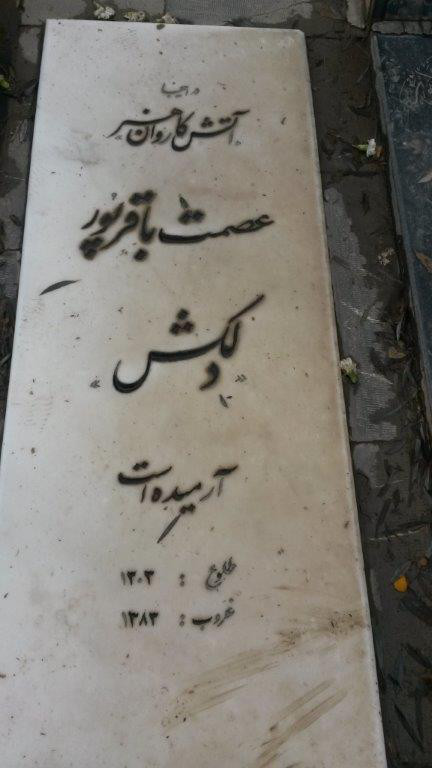 در اینجا
آتش کاروان هنر
عصمت باقرپور
«دلکش»
آرمیده است
طلوع : ۱۳۰۳
غروب : ۱۳۸۳